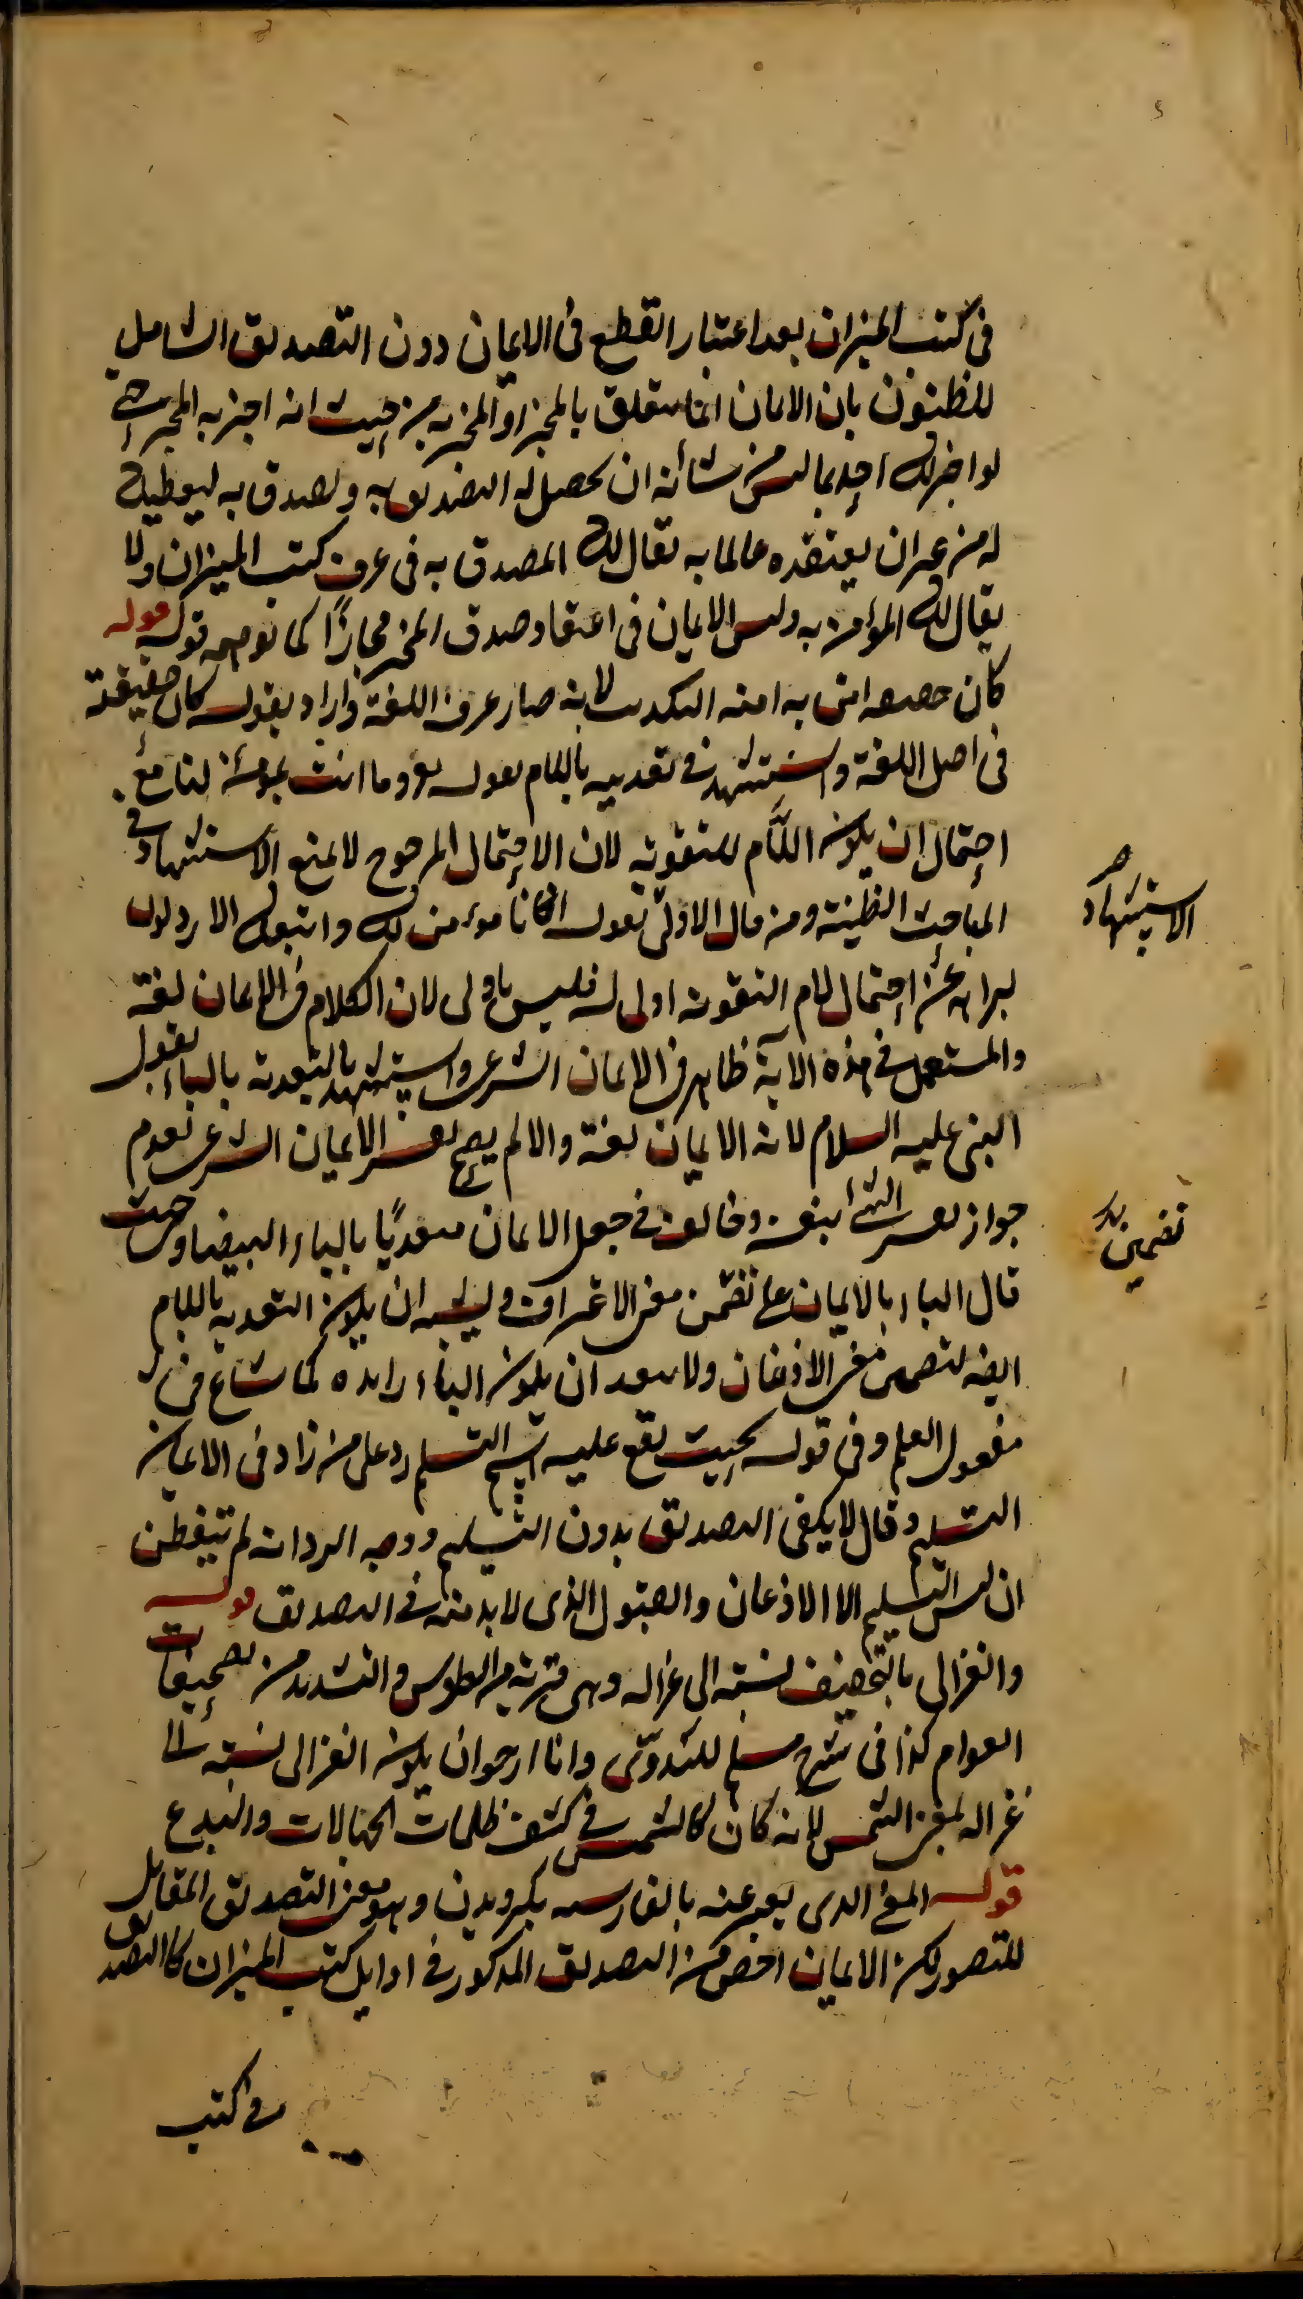 في كتب الميزان بعد اعتبار القطع في الايمان دون التصديق الشامل
للظنون بان الايمان انما يتعلق بالمخبر او المخبر به من حيث انه اخبر به المخبر حتى
لو اخبرك احد بما ليس من شأنه ان يحصل له التصديق به وتصدق به ليعطيك
له من غير ان يعتقده عالما به يقال لك المصدق به في عرف كتب الميزان ولا
يقال لك المؤمن به وليس الايمان في اعتقاد صدق المخبر مجازًا كما توهمه قوله قوله
كان حقيقة امن به امنه التكذيب لانه صار عرف اللغة واراد بقوله كان حقيقة
في اصل اللغة واستشهد في تعديه باللام بقوله تع وما انت بمؤمن لنا مع
احتمال ان يكون اللام للتقوية لان الاحتمال المرجوح لا يمنع الاستشهاد في
المباحث الظنية ومن قال الاولى بقوله تع انا مؤمن لك واتبعك الارذلون
لبراءته عن احتمال لام التقوية اولى له فليس باولى لان الكلام في الايمان لغة
والمستعمل في هذه الآية ظاهر في الايمان الشرعي واستشهد بالتعدية بالباء بقول
النبي عليه السلام لانه الايمان لغة والا لم يصح تفسير الايمان الشرعي لعدم
جواز تفسير الشئ بنفسه وخالف في جعل الايمان متعديًا بالباء البيضاوي حيث
قال الباء بالايمان على تضمن معنى الاعتراف ويشبه ان يكون التعدية باللام
ايضه لتضمن معنى الاذعان ولا يبعد ان يكون الباء زايده كما شاع في
مفعول العلم وفي قوله بحيث يقع عليه اسم التسليم رد على من زاد في الايمان
التسليم وقال لا يكفي التصديق بدون التسليم ووجه الرد انه لم يتفطن
ان ليس التسليم الا الاذعان والقبول الذي لا بد منه في التصديق قوله
والغزالي بالتخفيف نسبته الى غزاله وهي قرية من الطوس والتشديد من تصحيفات
العوام كذا في شرح مسلم للنووي وانا ارجو ان يكون الغزالي نسبته الى
غزاله بمعنى الشمس لانه كان كالشمس في كشف ظلمات الجهالات والبدع
قوله المعنى الذي يعبر عنه بالفارسيه بكرويدن وهو معنى التصديق المقابل
للتصور لكن الايمان اخص من التصديق المذكور في اوايل كتب الميزان كالتصديق
في كتب
الاستشهاد صح
تضمين بدل